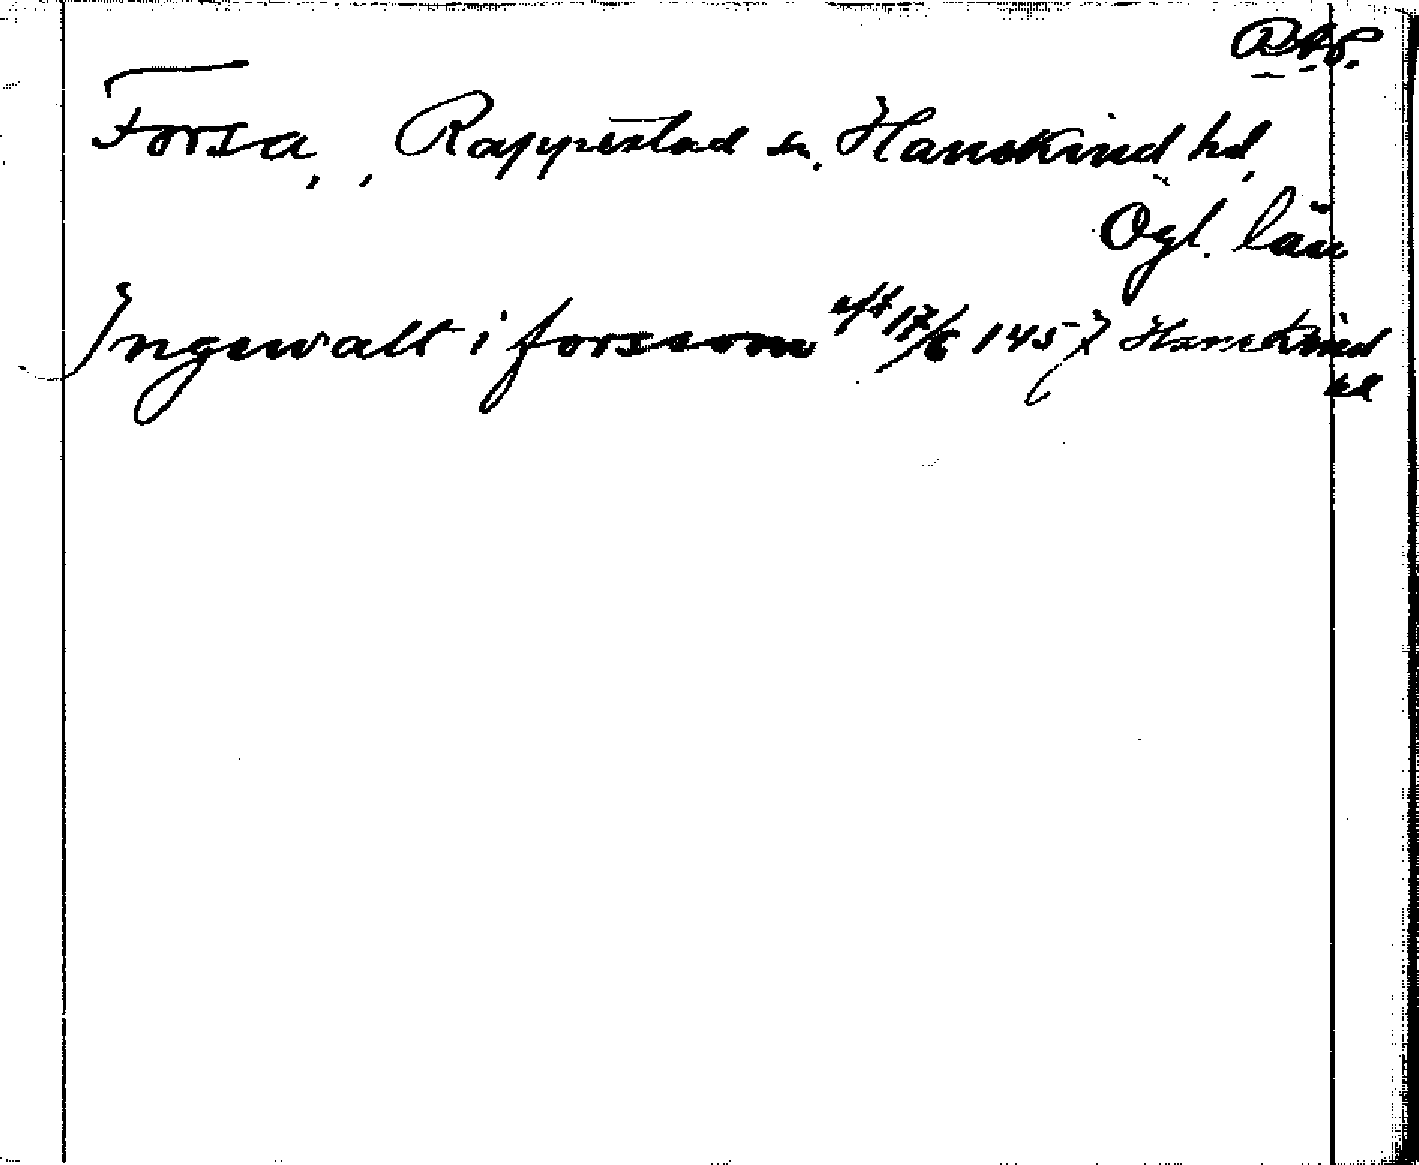 Forsa, , Rappestad sn. Hanekind hd,
Ögl. län
Ingewalt i forssom aft 17/6 1457 Hanekind
hd